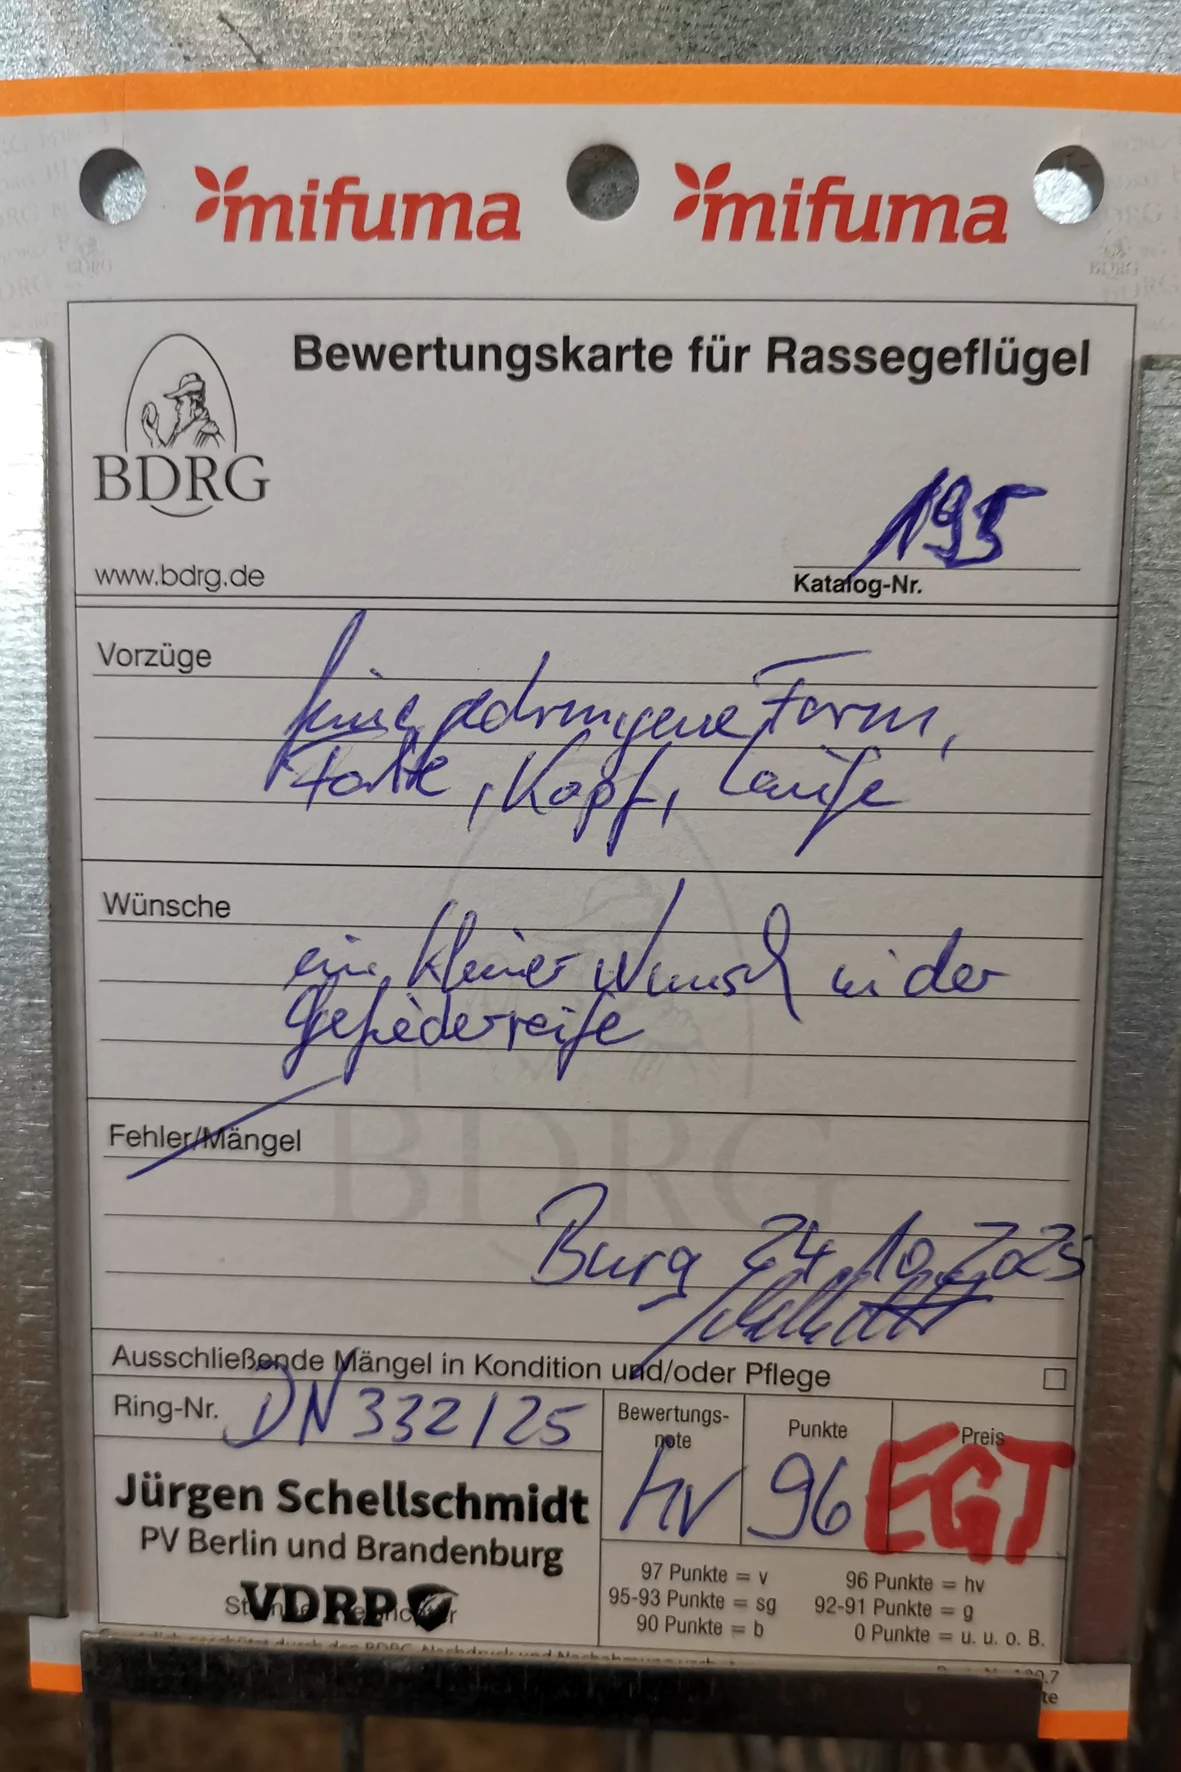 mifuma mifuma
Bewertungskarte für Rassegeflügel
BDRG
195
www.bdrg.de
Katalog-Nr.
Vorzüge
feine gedrungene Form,
Farbe, Kopf, Läufe
Wünsche
ein kleiner Wunsch in der
Gefiederreife
Fehler/Mängel
BDRG
Burg 24.10.2025
Ausschließende Mängel in Kondition und/oder Pflege
Ring-Nr. DN 332/25
Bewertungs-
note
Punkte
Preis
hv 96 EGT
Jürgen Schellschmidt
PV Berlin und Brandenburg
VDRP
97 Punkte = v 96 Punkte = hv
95-93 Punkte = sg 92-91 Punkte = g
90 Punkte = b 0 Punkte = u. u. o. B.